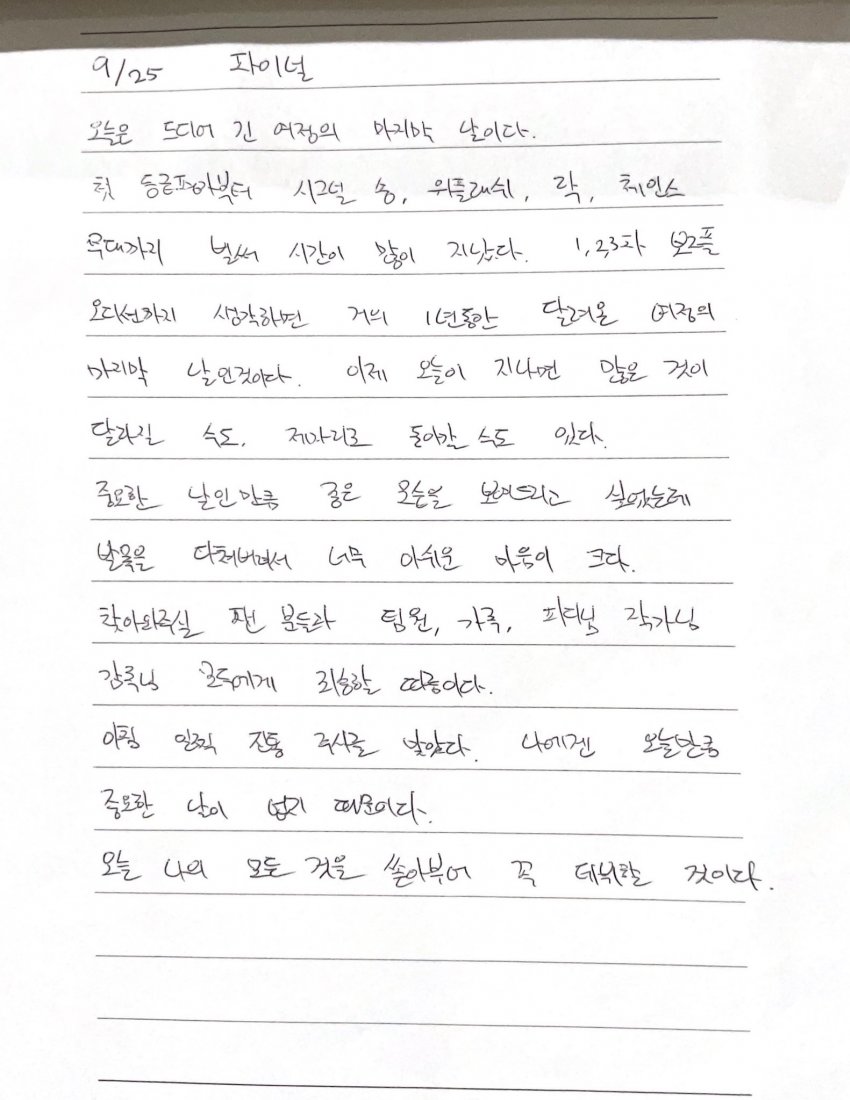 9/25 파이널
오늘은 드디어 긴 여정의 마지막 날이다.
첫 등급평가부터 시그널 송, 위플래쉬, 락, 체인스
무대까지 벌써 시간이 많이 지났다. 1,2,3차 보플
오디션까지 생각하면 거의 1년동안 달려온 여정의
마지막 날인것이다. 이제 오늘이 지나면 많은 것이
달라질 수도, 제자리로 돌아갈 수도 있다.
중요한 날인만큼 좋은 모습을 보여드리고 싶었는데
발목을 다쳐버려서 너무 아쉬운 마음이 크다.
찾아와주실 팬 분들과 팀원, 가족, 피디님 작가님
감독님 모두에게 죄송할 따름이다.
아침 일찍 진통 주사를 맞았다. 나에겐 오늘만큼
중요한 날이 없기 때문이다.
오늘 나의 모든 것을 쏟아부어 꼭 데뷔할 것이다.